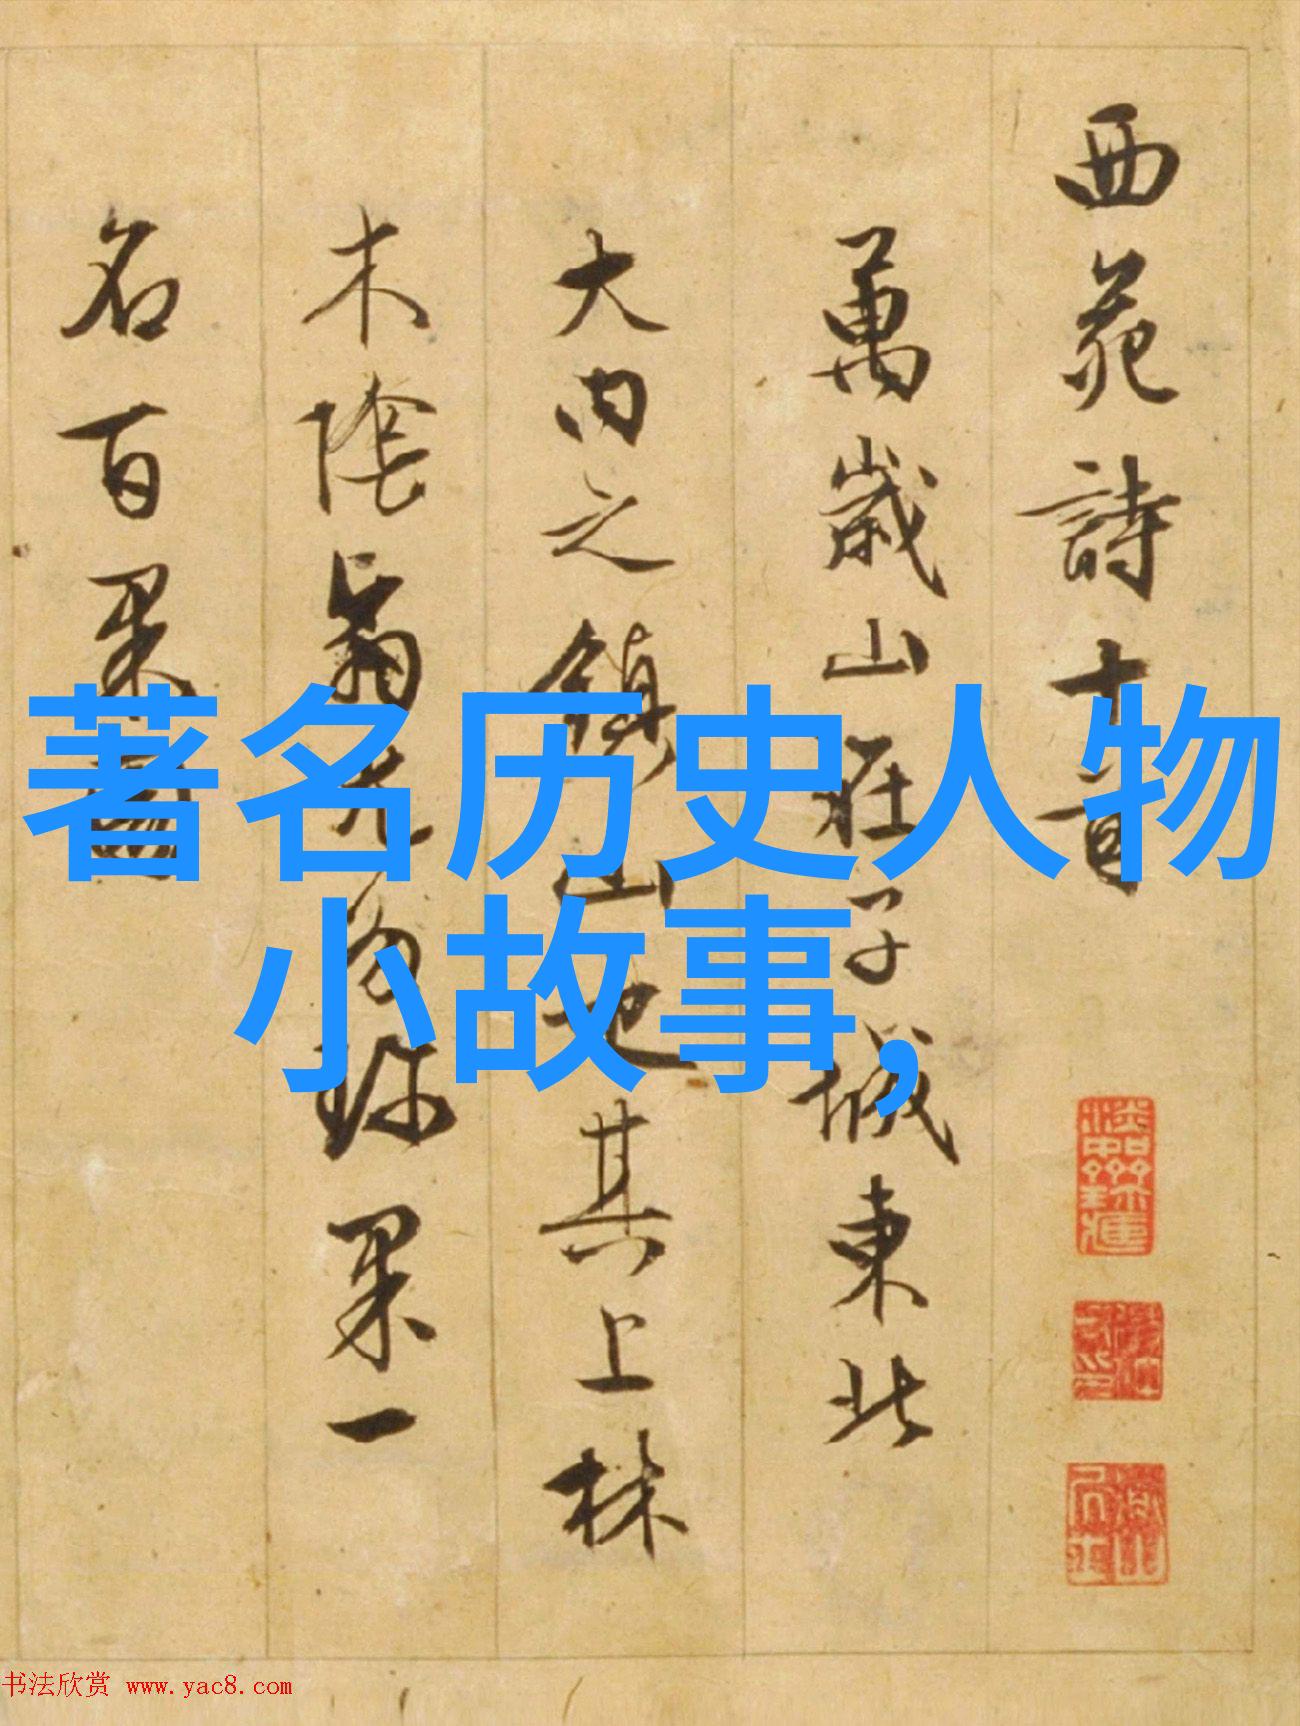 西苑詩十首
萬歲山在子城東北
大内之鎮山也其上林
木陰翳尤多珍果一
名百果園
著名历史人物
小故事,
书法欣赏 www.yac8.com